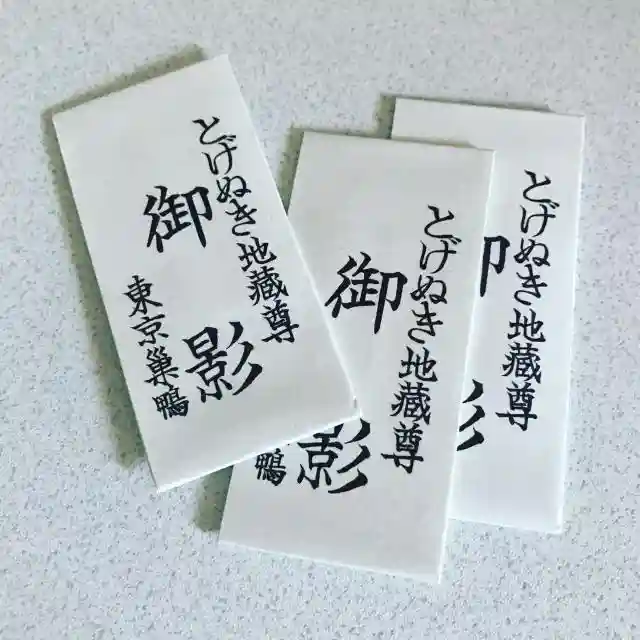 とげぬき地蔵尊
御影
東京巣鴨
とげぬき地蔵尊
御影
鴨
とげぬき地蔵尊
御影